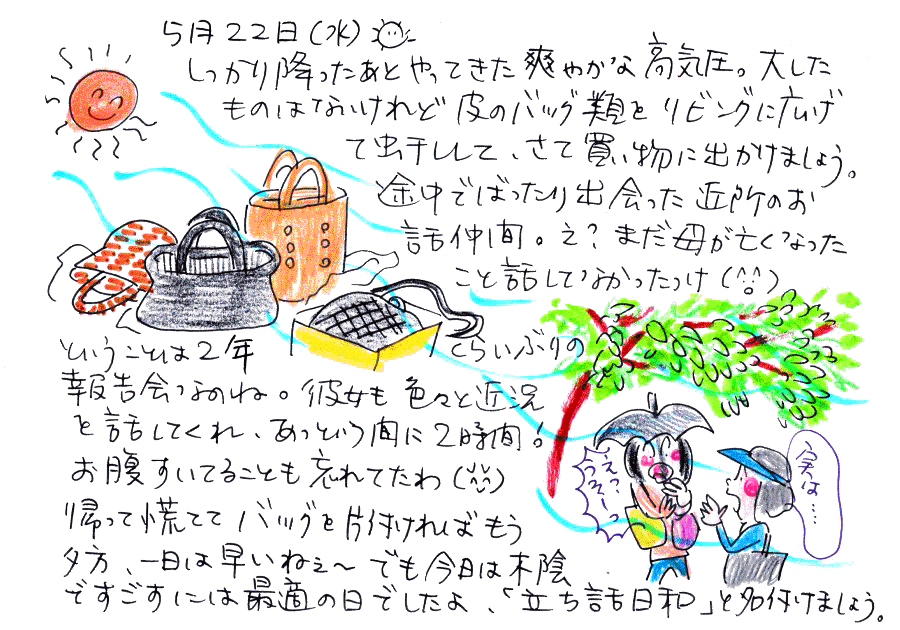 5月22日(水)
しっかり降ったあとやってきた爽やかな高気圧。大した
ものはないけれど皮のバッグ類をリビングに広げ
て虫干しして、さて買い物に出かけましょう。
途中でばったり出会った近所のお
話仲間。え？まだ母が亡くなった
こと話していなかったっけ
ということは2年
くらいぶりの
報告会なのね。彼女も色々と近況
を話してくれ、あっという間に2時間！
お腹すいてることも忘れてたわ
帰って慌ててバッグを片付ければもう
夕方、一日は早いねぇ〜でも今日は木陰
ですごすには最適の日でしたよ、「立ち話日和」と名付けましょう。
えっっうっそー
実は…